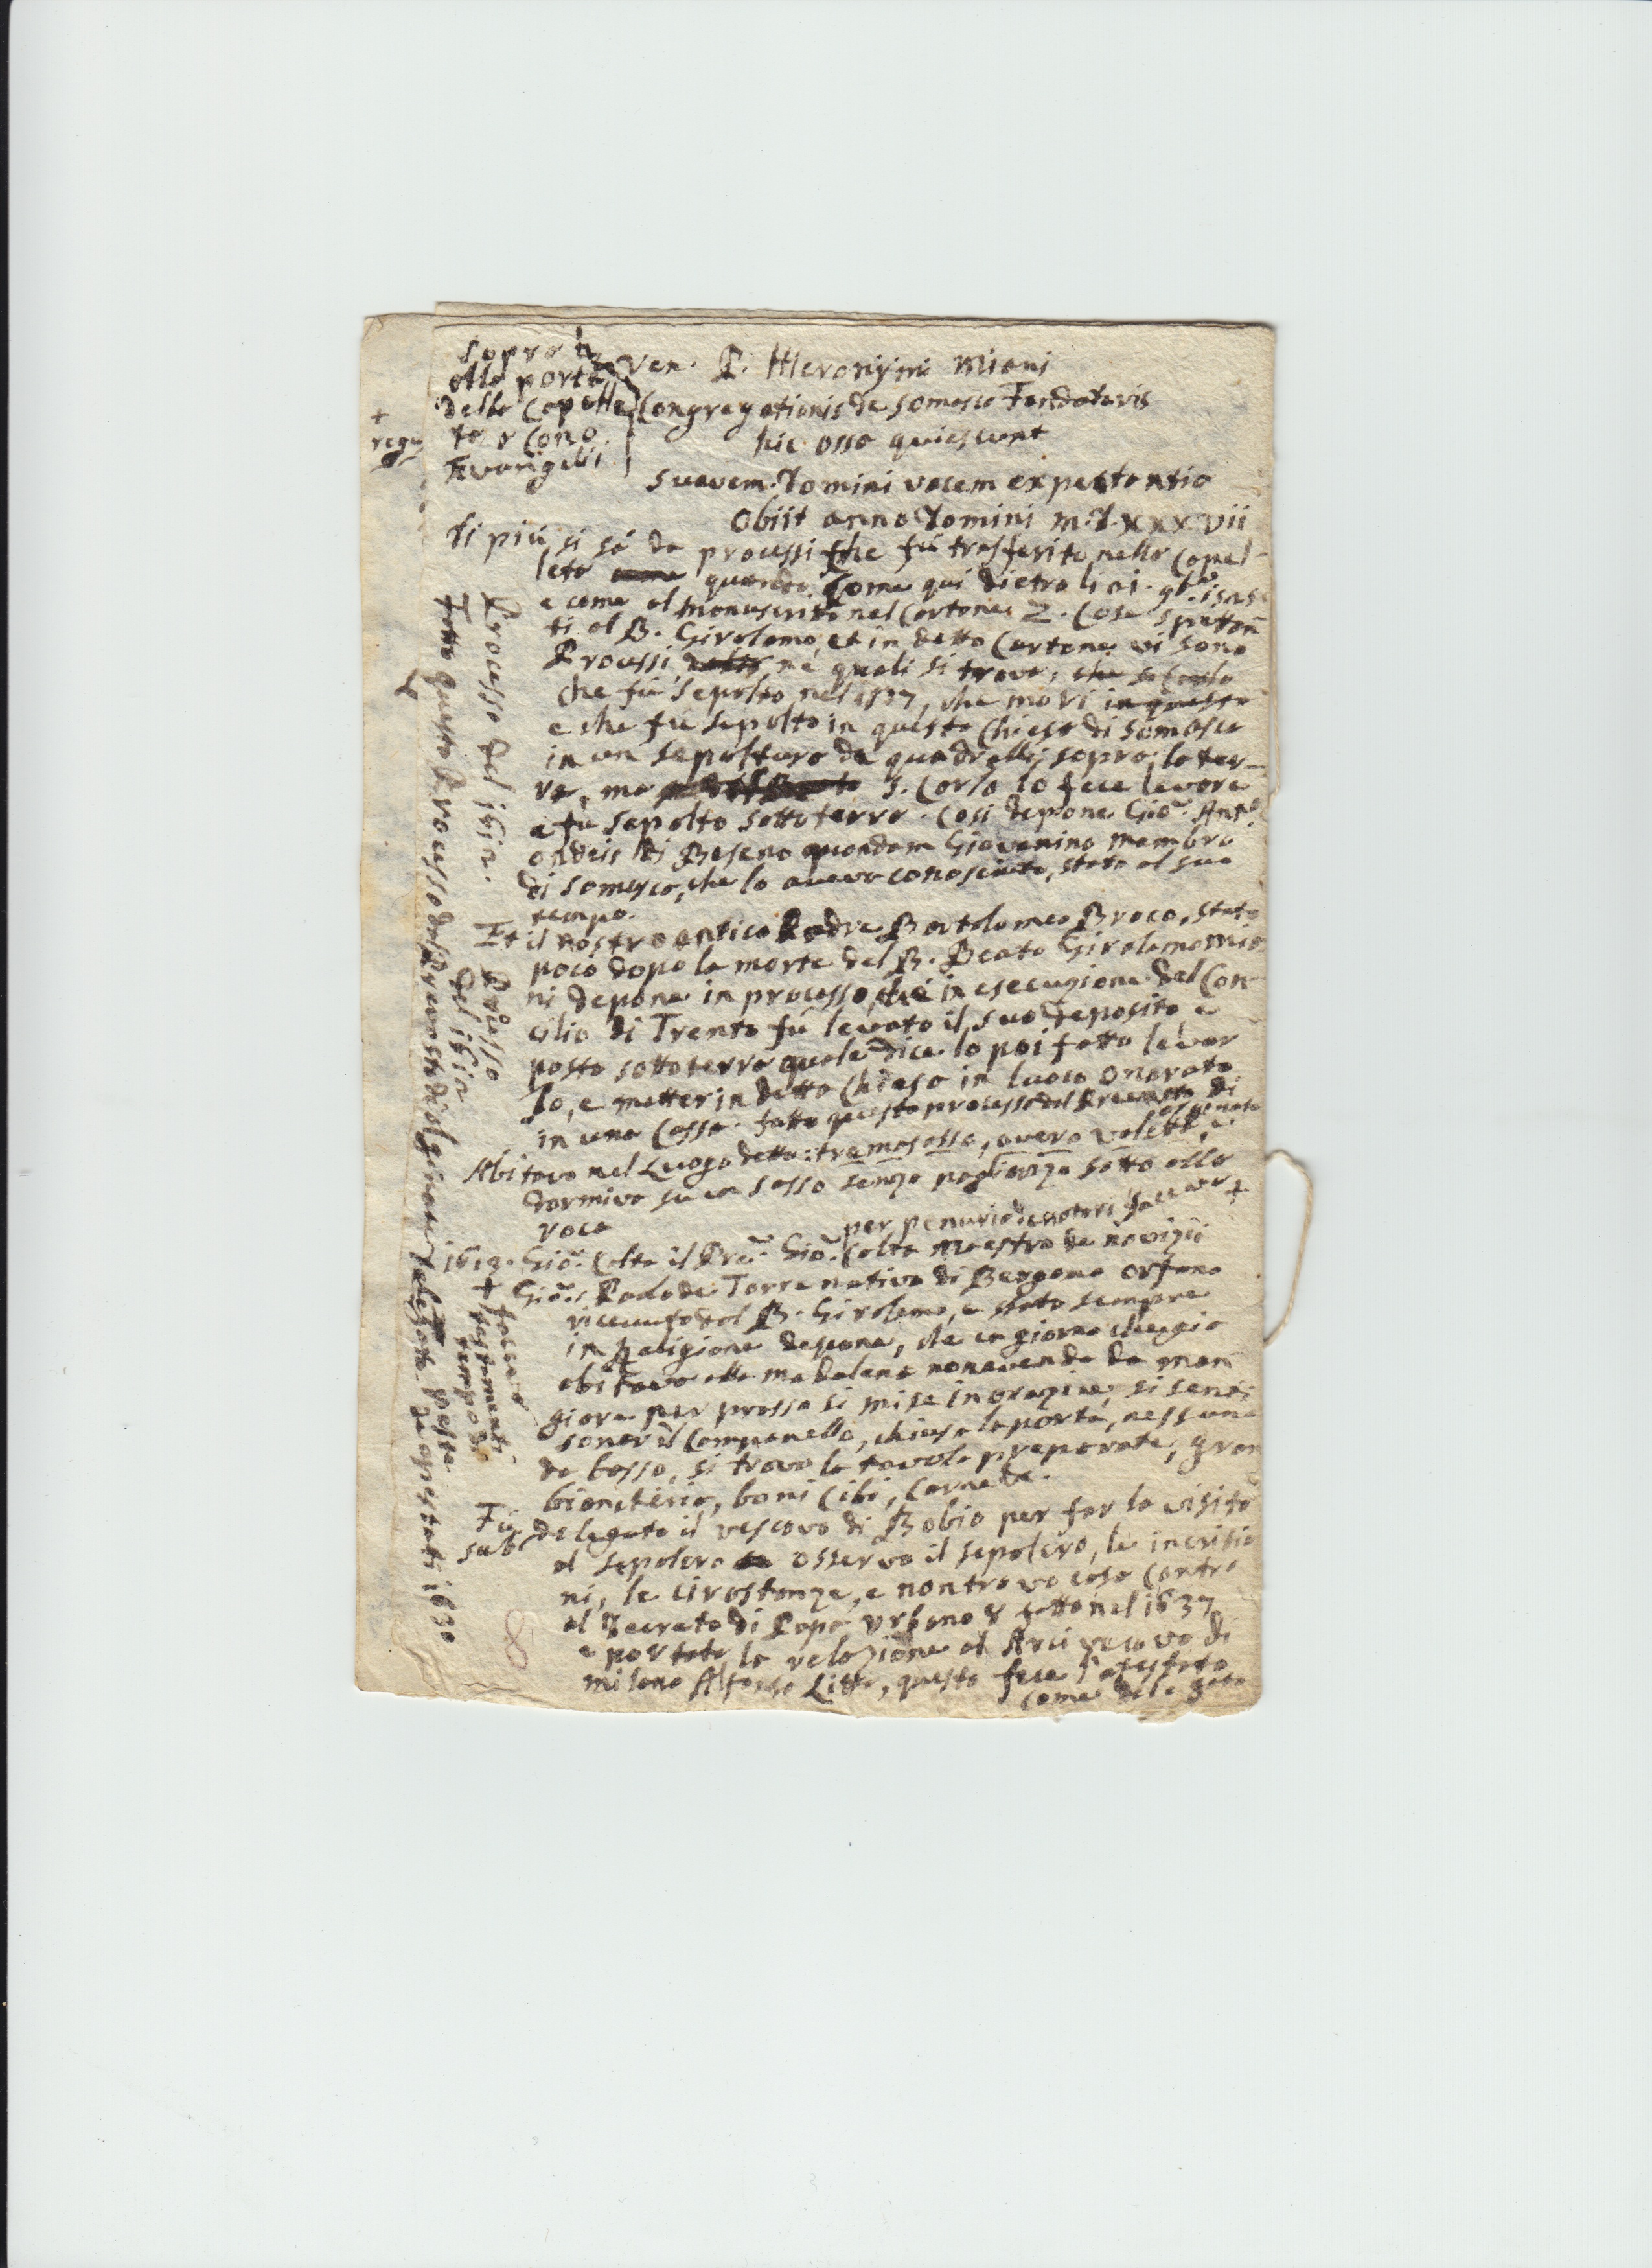 sopra
alla porta
della Capella
to x Cono
Evangelis
Ven. P. Hieronymi Miani
Congregationis de Somasco Fundatoris
hic ossa quiescunt
suavem Domini vocem expectantia
Obiit anno Domini M.D.XXXVII
Di più si sà da processi che fù trasferito nella Capel-
leta quando come qui dietro li
e come al manuscritto nel Cartone 2. Cose spetan
ti al B. Girolamo, et in detto Cartone vi sono
Processi, ne quali si trova, che S. Carlo
che fù sepolto nel 1537, che morì in questo
e che fù sepolto in questa Chiesa di Somasca
in un sepoltura de quadrelli sopra la ter-
ra, ma S. Carlo lo fece levare
e fu sepolto sotto terra. Così depone Gio. Anto
ondeis di Beseno quondam Giovanino membro
di Somasco, che lo aveva conosciuto, stato al suo
tempo.
Et il nostro antico Padre Bartolomeo Broco, stato
poco dopo la morte del B. Beato Girolamo Mia
ni depone in processo, che in esecuzione del Con-
cilio di Trento fù levato il suo deposito e
posto sotto terra quale dice lo poi fatto levar
lo, e metter in detta Chiesa in luoco onorato
in una Cassa. fatto questo processo dal Prevosto di
olginate
Abitava nel Luogo detto: tramosasso, overo valetta, e
dormiva su un sasso senza pagliarizo sotto alla
roca
per penuria de notari facevar +
1613. Gio. Colta il Pre. Gio. Colta Maestro de novizii
Gio. Paolo de Torre nativo di Bergamo orfano
ricevuto dal B. Girolamo, e stato sempre
in Religione depone, che un giorno che gia
abitava alla madalena non avendo da man
giare per pressa si mise in orazione, si sentì
sonar il Campanello, chiusa la porta, nessuno
da basso, si trova la tavola preparata, gran
biancheria, boni cibi, carne
Fù
sub delegato il vescovo di Bobio per far la visita
al sepolcro osservo il sepolcro, le incrisio
ni, le cirostanze, e non trovo cosa contro
al Decreto di Papa Urbano 8 fatto nel 1637
e portata la relazione al Arcivescovo di
milano Alfonso Litta, questo fece l'atestato
come delegato
+
regu
L
Processo del 1612. Et Processo
del 1612
Fatto questo Processo dal Prevosto di olginate Delegato da apestati 1630
peste
+ facevar
testamenti
tempo di
8